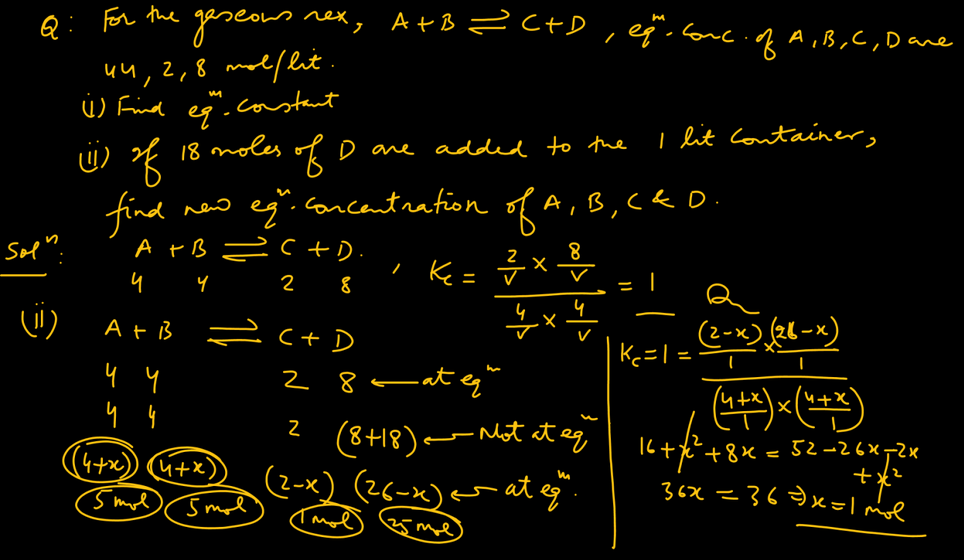 Q: For the gaseous rex, A + B ⇌ C + D, eqᵐ. conc. of A, B, C, D are
4 4, 2, 8 mol/lit.
(i) Find eqᵐ. constant
(ii) If 18 moles of D are added to the 1 lit container,
find new eqᵐ. concentration of A, B, C & D.
Solⁿ: A + B ⇌ C + D. , Kc = (2/V × 8/V) / (4/V × 4/V) = 1
4 4 2 8
(ii) A + B ⇌ C + D
4 4 2 8 ← at eqᵐ
4 4 2 (8+18) ← Not at eqᵐ
(4+x) (4+x) (2-x) (26-x) ← at eqᵐ.
5 mol 5 mol 1 mol 25 mol
Kc = 1 = ((2-x)/1 × (26-x)/1) / ((4+x)/1 × (4+x)/1)
16 + x² + 8x = 52 - 26x - 2x
+ x²
36x = 36 ⇒ x = 1 mol